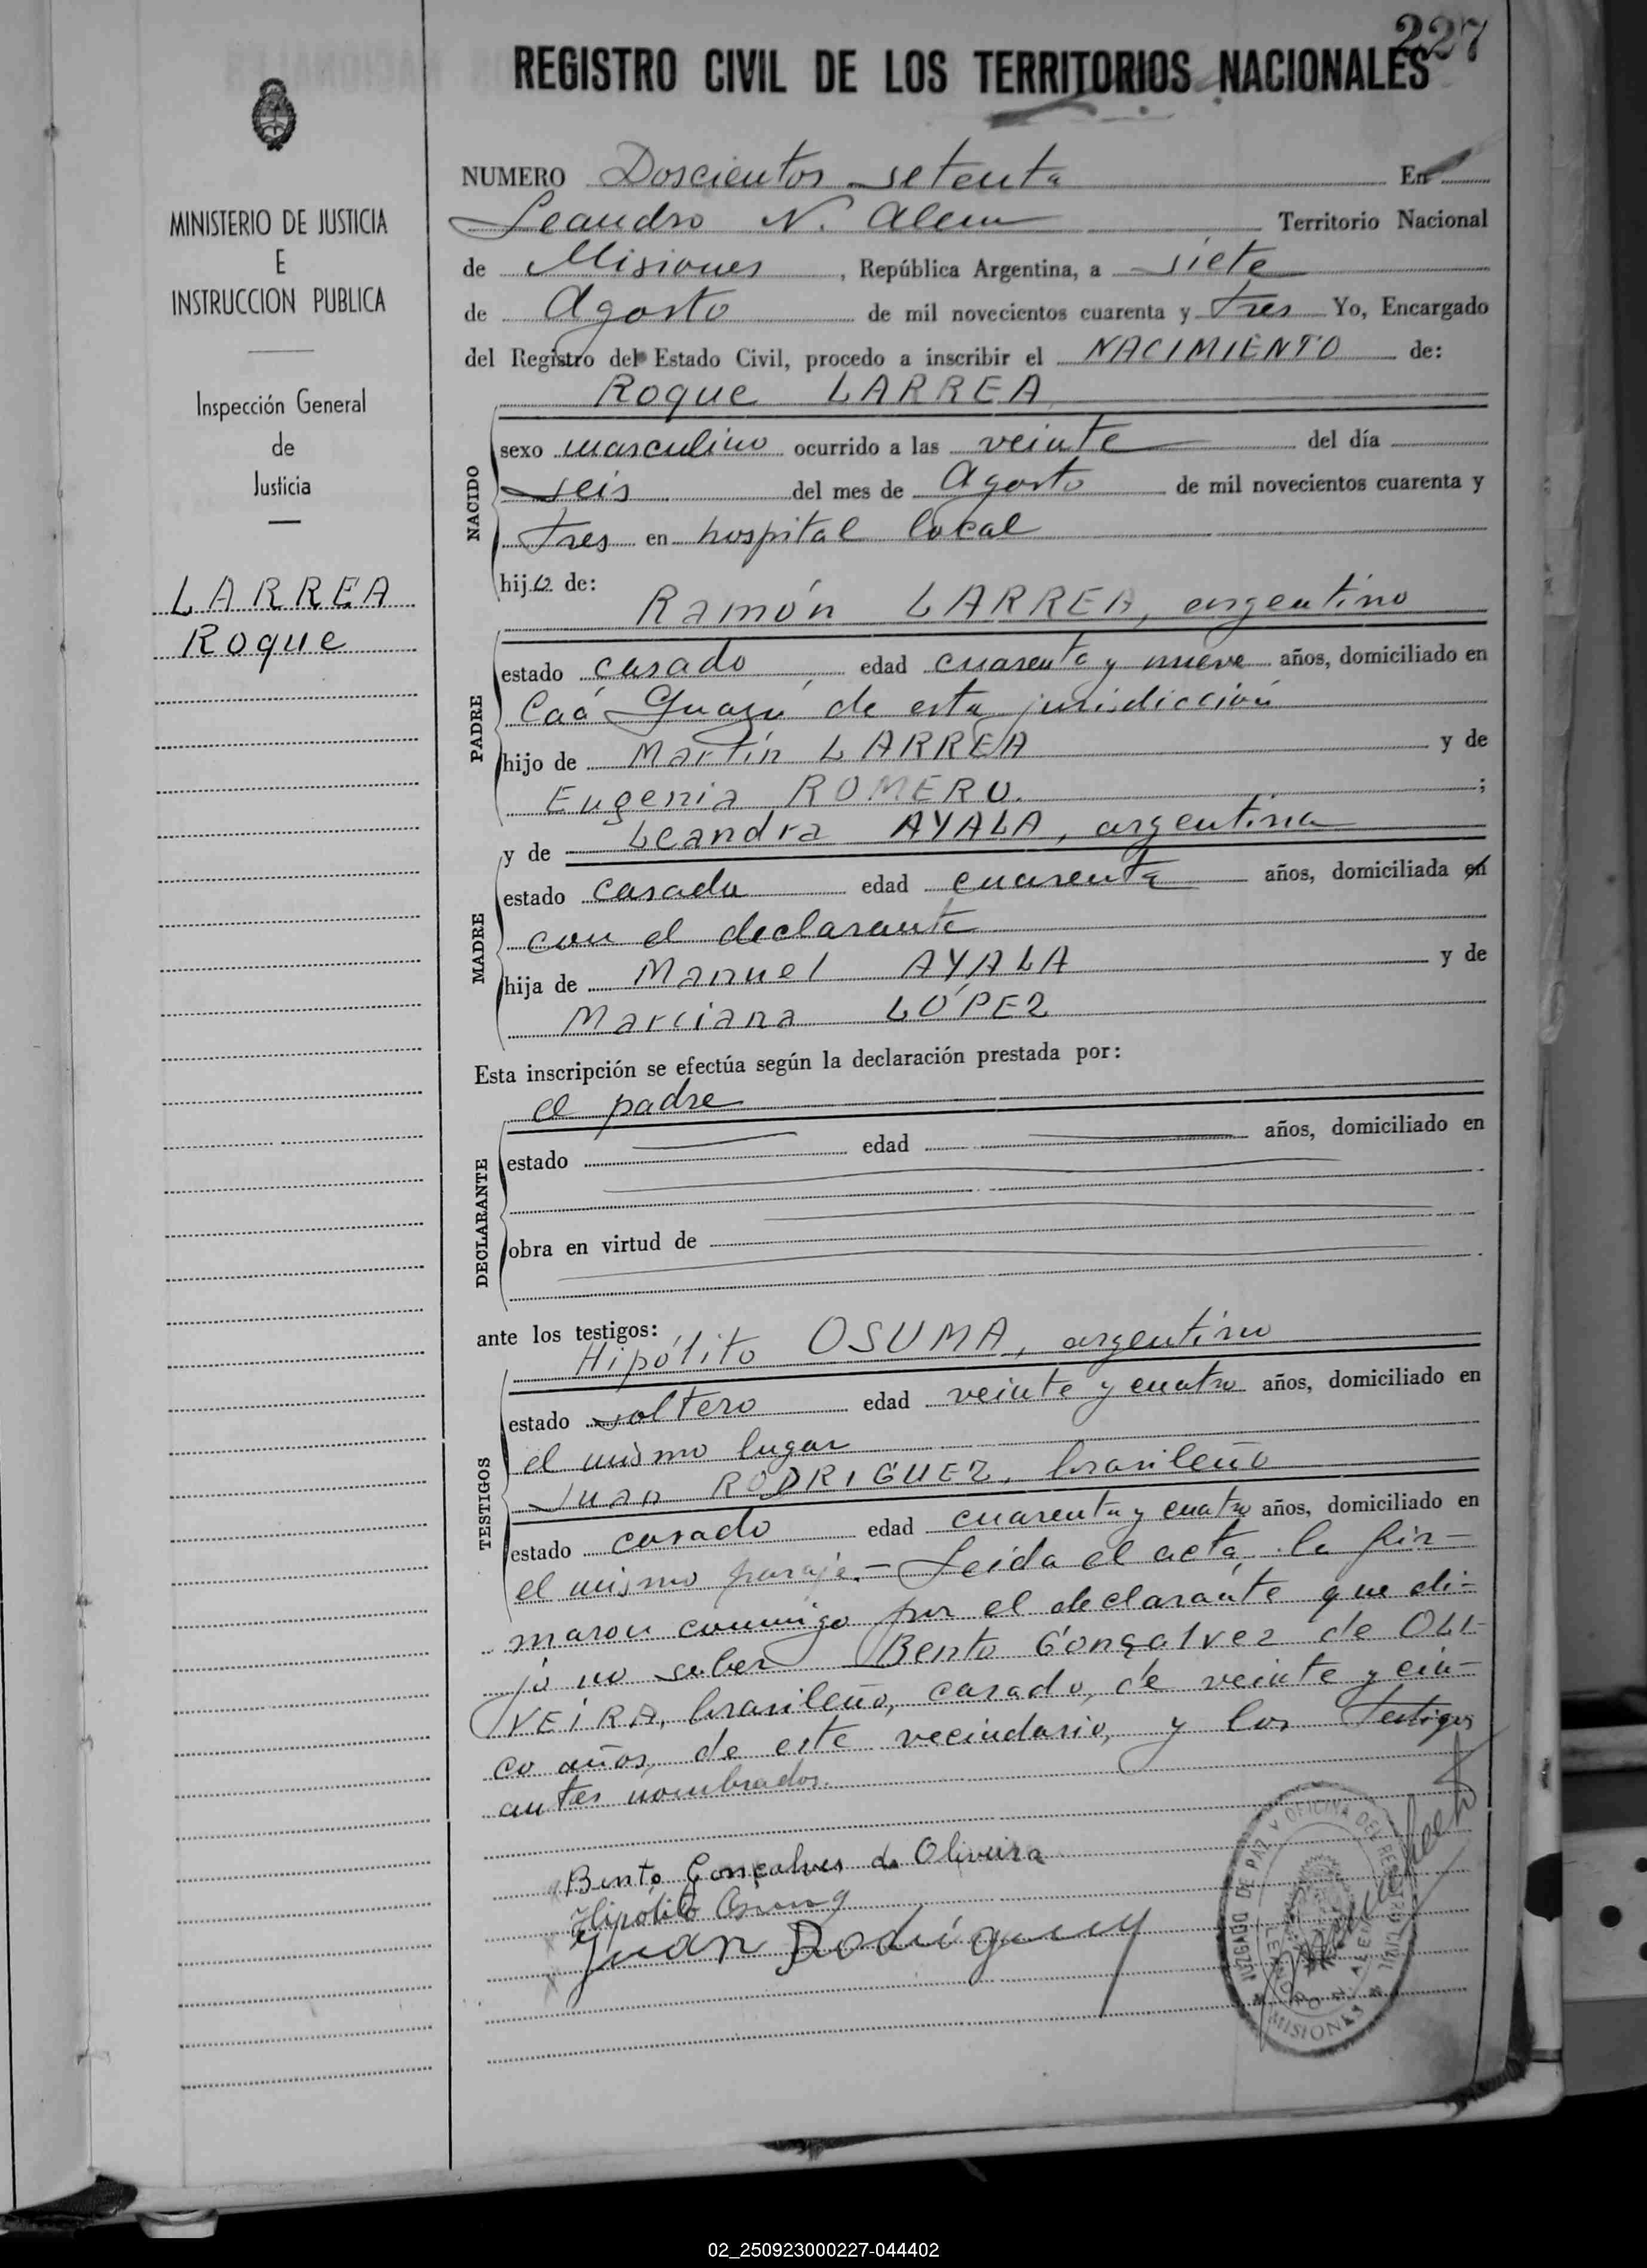 227
REGISTRO CIVIL DE LOS TERRITORIOS NACIONALES
MINISTERIO DE JUSTICIA
E
INSTRUCCION PUBLICA
Inspección General
de
Justicia
LARREA
Roque
NUMERO Doscientos setenta En
Leandro N. Alem Territorio Nacional
de Misiones, República Argentina, a siete
de Agosto de mil novecientos cuarenta y tres Yo, Encargado
del Registro del Estado Civil, procedo a inscribir el NACIMIENTO de:
Roque LARREA
NACIDO
sexo masculino ocurrido a las veinte del día
seis del mes de Agosto de mil novecientos cuarenta y
tres en hospital local
hijo de:
Ramón LARREA, argentino
PADRE
estado casado edad cuarenta y nueve años, domiciliado en
Caá Guazú de esta jurisdicción
hijo de Martín LARREA y de
Eugenia ROMERO. ;
y de Leandra AYALA, argentina
MADRE
estado casada edad cuarenta años, domiciliada en
con el declarante
hija de Manuel AYALA y de
Marciana LÓPEZ
Esta inscripción se efectúa según la declaración prestada por:
el padre
DECLARANTE
estado edad años, domiciliado en
obra en virtud de
ante los testigos:
Hipólito OSUMA, argentino
TESTIGOS
estado soltero edad veinte y cuatro años, domiciliado en
el mismo lugar
Juan RODRIGUEZ, brasileño
estado casado edad cuarenta y cuatro años, domiciliado en
el mismo paraje.- Leída el acta, la fir-
maron conmigo por el declarante que di-
jo no saber Bento Gonçalvez de OLI-
VEIRA, brasileño, casado, de veinte y cin-
co años, de este vecindario, y los testigos
antes nombrados.
Bento Gonçalves de Oliveira
Hipólito Osuna
Juan Rodríguez
JUZGADO DE PAZ Y OFICINA DEL REGISTRO CIVIL
LEANDRO N. ALEM
MISIONES
02_250923000227-044402